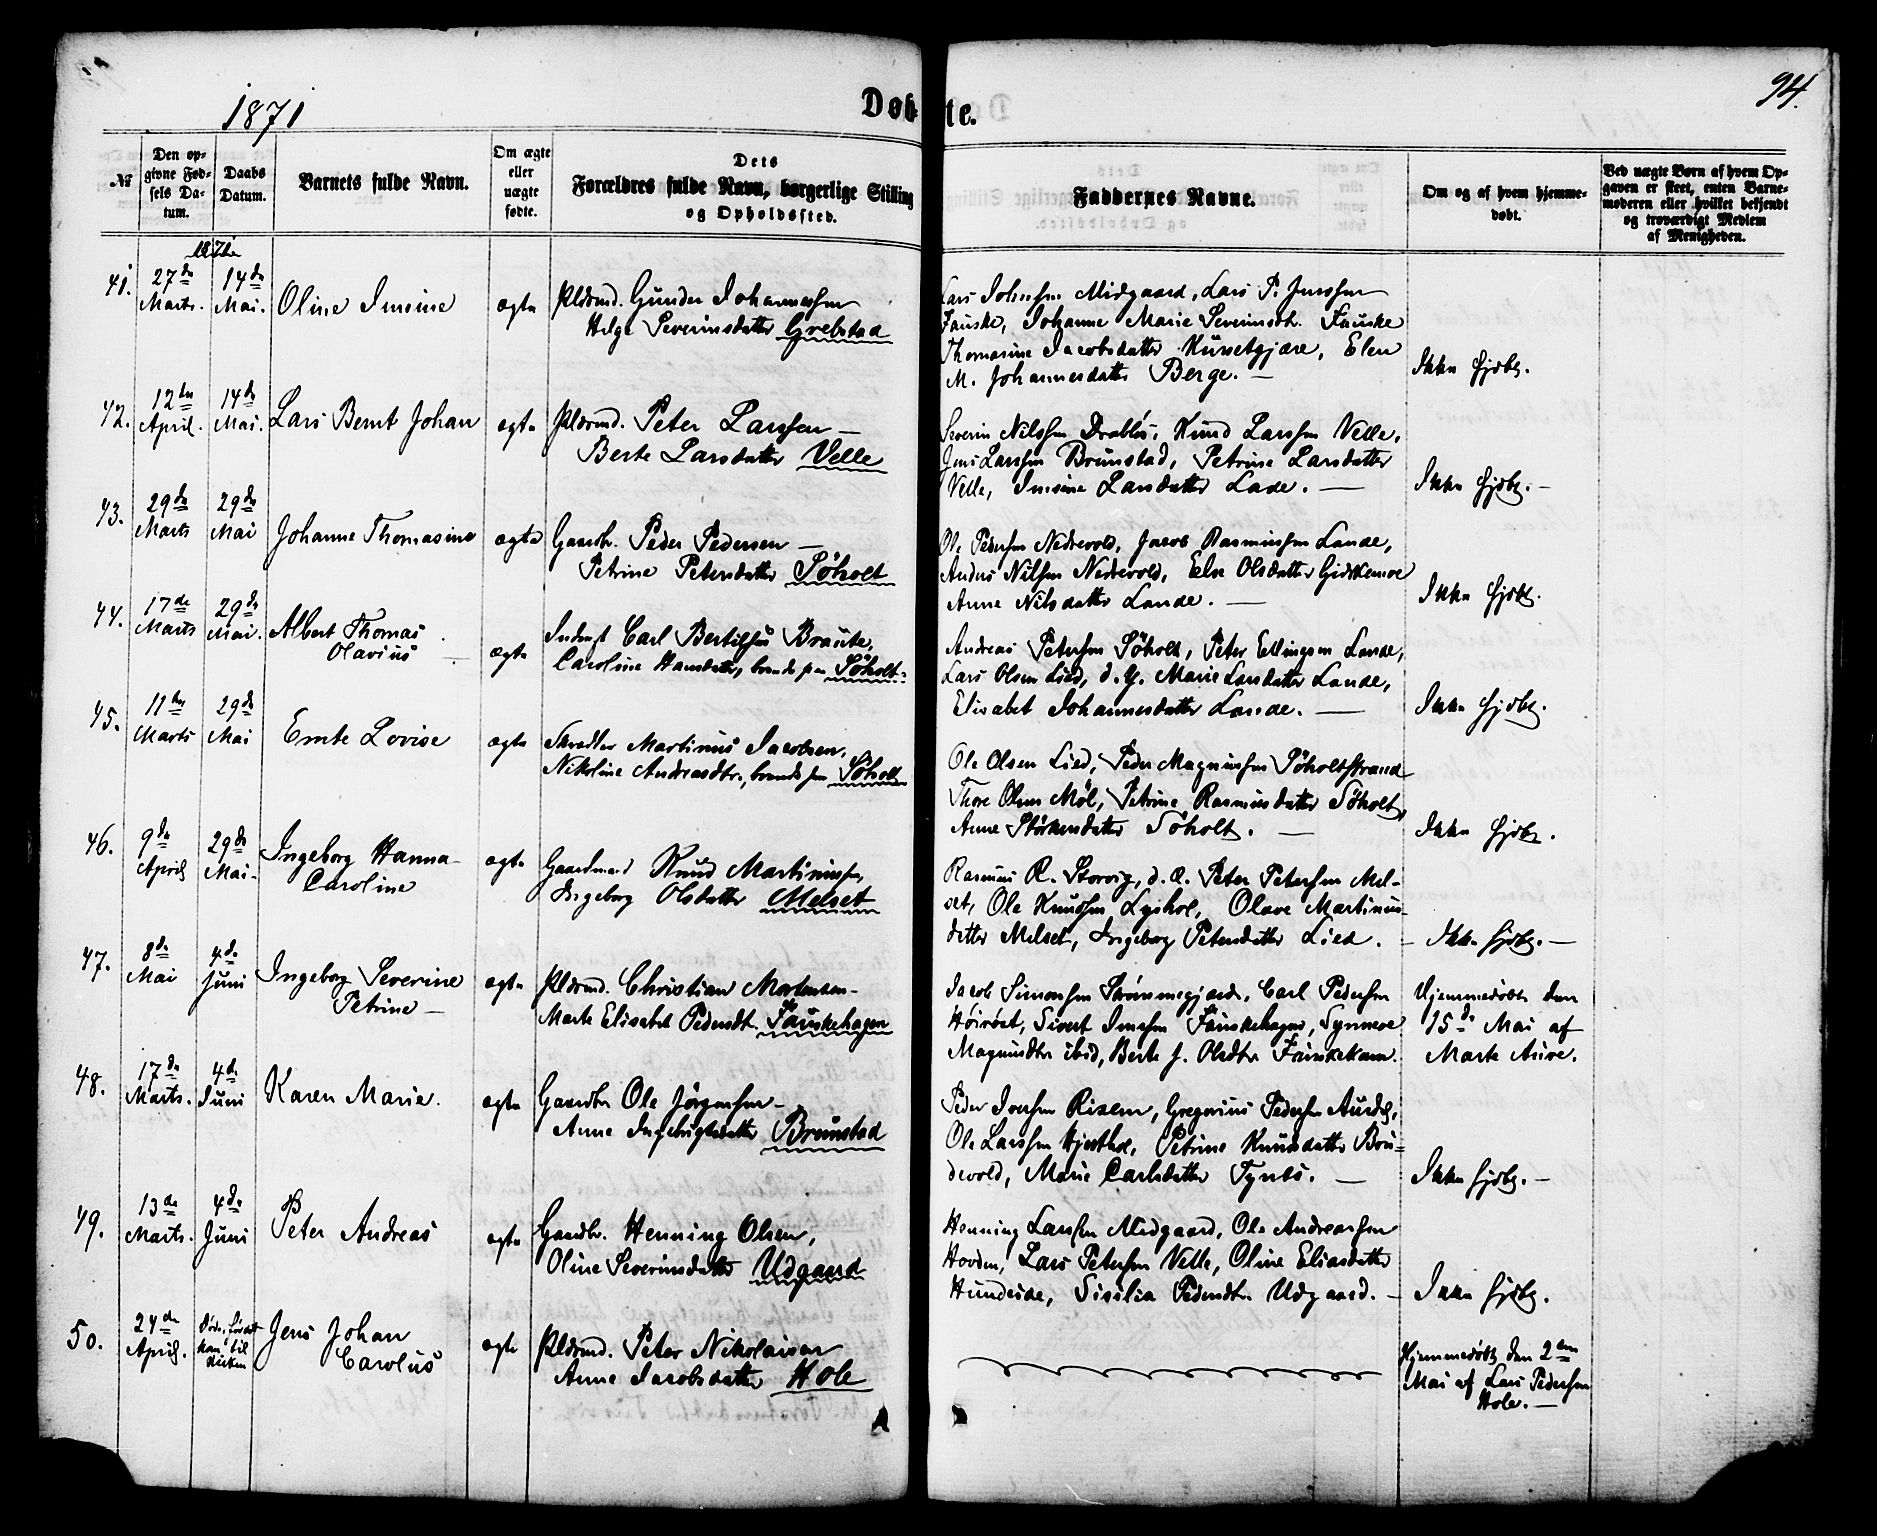 1871
Døb-
te.
94.
№
Den op-
givne Fød-
sels Da-
tum.
Daabs
Datum.
Barnets fulde Navn.
Om ægte
eller
uægte
fødte.
Dets
Forældres fulde Navn, borgerlige Stilling
og Opholdssted.
Faddernes Navne.
Om og af hvem hjemme-
døbt.
Ved uægte Børn af hvem Op-
gaven er skeet, enten Barne-
moderen eller hvilket bekjendt
og troværdigt Medlem
af Menigheden.
1871
41.
27de
Marts.
14de
Mai.
Oline Insine
ægte
Pldsmd. Gunder Johannessen
Helge Severinsdatter Grebstad
Lars Johnsen Midgaard, Lars P. Jenssen
Fauske, Johanne Marie Severinsdt. Fauske
Thomasine Jacobsdatter Kursetgjære, Elen
M. Johannesdatter Berge. —
Ikke hjdbt.
42.
12te
April.
14de
Mai.
Lars Bernt Johan
ægte
Pldsmd. Peter Larssen —
Berte Larsdatter Velle
Severin Nilssen Drabløs, Knud Larssen Velle,
Jens Larssen Brunstad, Petrine Larsdatter
Velle, Insine Larsdatter Lade. —
Ikke hjdbt. —
43.
29de
Marts
29de
Mai
Johanne Thomasine
ægte
Gaardbr. Peder Pedersen —
Petrine Petersdatter Søholt
Ole Pedersen Nedrevold, Jacob Rasmussen Lande,
Anders Nilsen Nedrevold, Else Olsdatter Gidskemoe
Anne Nilsdatter Lande. —
Ikke hjdbt.
44.
17de
Marts
29de
Mai.
Albert Thomas
Olavius —
ægte
Inderst Carl Bertilsen Braute,
Caroline Hansdatter, boende paa Søholt.
Andreas Petersen Søholt, Peter Ellingsen Lande,
Lars Olsen Lied, d. y. Marie Larsdatter Lande,
Elisabet Johannesdatter Lande. —
Ikke hjdbt.
45.
11te
Marts
29de
Mai
Emte Lovise
ægte
Skredder Martinus Jacobsen,
Nikoline Andreasdtr., boende paa Søholt
Ole Olsen Lied, Peder Magnussen Søholtstrand
Thore Olsen Møl, Petrine Rasmusdatter Søholt,
Anne Størkersdatter Søholt. —
Ikke hjdbt.
46.
9de
April
29de
Mai.
Ingeborg Hanna
Caroline
ægte
Gaardmand Knud Martinussen,
Ingeborg Olsdatter Melset
Rasmus R. Storvig, d. æ. Peter Petersen Mel-
set, Ole Knudsen Lyshol, Olave Martinus-
datter Melset, Ingeborg Petersdatter Lied. —
Ikke hjdbt. —
47.
8de
Mai
4de
Juni
Ingeborg Severine
Petrine —
ægte
Pldsmd. Christian Mortensen —
Marte Elisabet Pedersdt. Fauskehagen
Jacob Simonsen Strømmegjærde, Carl Pedersen
Høiröst, Sivert Insesen Fauskehagen, Synneve
Magnusdtr ibid, Berte J. Olsdtr Fauskekam.
Hjemmedøbt den
15de Mai af
Marte Aure.
48.
17de
Marts.
4de
Juni
Karen Marie.
ægte
Gaardbr Ole Jørgensen —
Anne Ingebrigtsdatter Brunstad
Peder Iversen Risem, Gregorius Pedersen Aurdal,
Ole Larssen Hjorthol, Petrine Knudsdatter Bru-
devold, Marie Carlsdatter Tynes. —
Ikke hjdbt. —
49.
13de
Marts.
4de
Juni
Peter Andreas
ægte
Gaardbr. Henning Olsen,
Oline Severinsdatter Udgaard
Henning Larssen Midgaard, Ole Andreassen
Hovden, Lars Petersen Velle, Oline Eliasdatter
Hundeide, Sisilia Pedersdtr. Udgaard. —
Ikke hjdbt.
50.
24de
April.
Døde, førend
kom til
Kirken
Jens Johan
Carolus
ægte
Pldsmd. Peter Nikolaisen
Anne Jacobsdatter Hole
Hjemmedøbt den 2den
Mai af Lars Pedersen
Hole. —